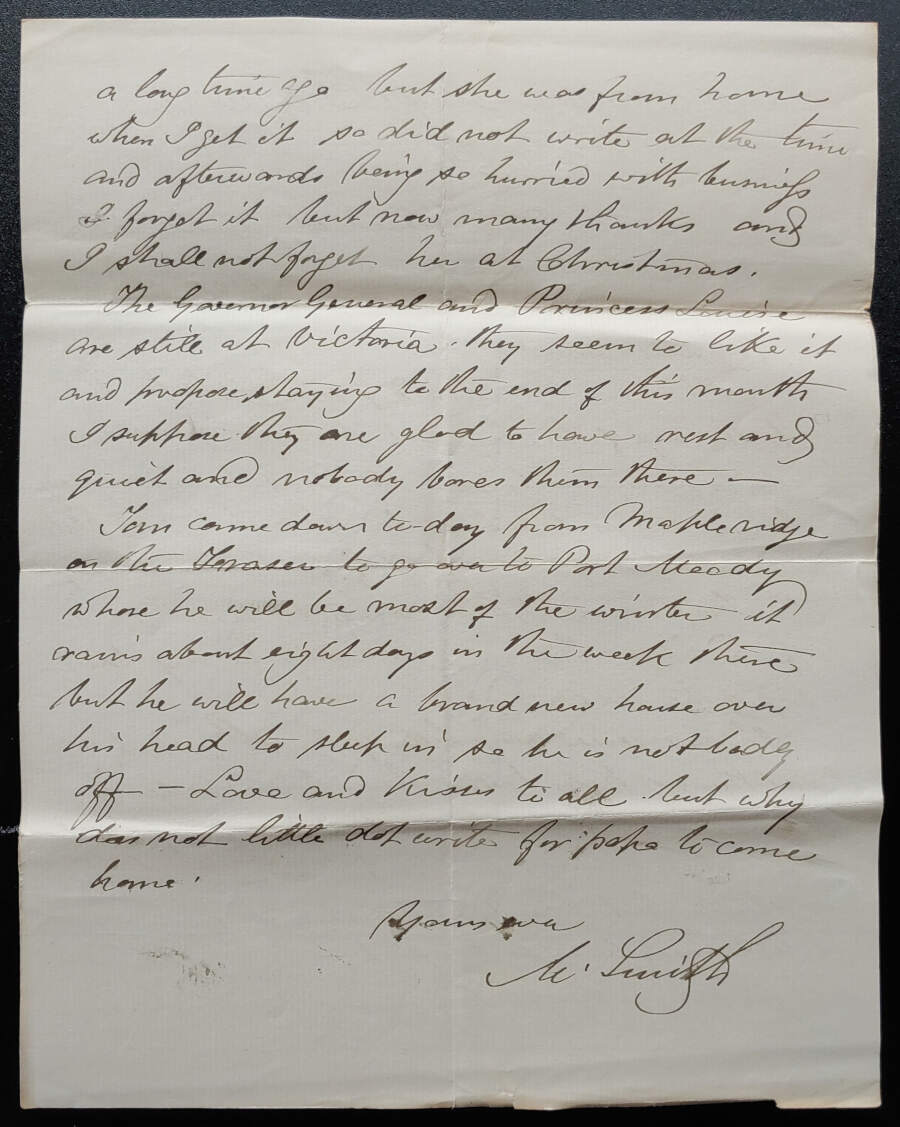 a long time ago but she was from home
when I get it so did not write at the time
and afterwards being so hurried with business
I forgot it but now many thanks and
I shall not forget her at Christmas.
The Governor General and Princess Louise
are still at Victoria. they seem to like it
and propose staying to the end of this month
I suppose they are glad to have rest and
quiet and nobody bores them there —
Tom came down to-day from Maple ridge
on the Fraser to go over to Port Moody
where he will be most of the winter it
rains about eight days in the week there
but he will have a brand new house over
his head to sleep in so he is not badly
off — Love and Kisses to all but why
does not little dot write for papa to come
home.
Yours ever
M. Smith